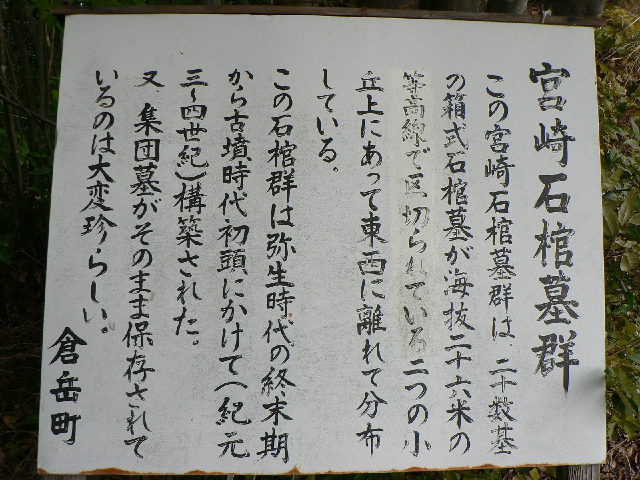 宮崎石棺墓群
この宮崎石棺墓群は 二十数基
の箱式石棺墓が海抜二十六米の
等高線で区切られている二つの小
丘上にあって東西に離れて分布
している。
この石棺群は弥生時代の終末期
から古墳時代初頭にかけて(紀元
三~四世紀)構築された。
又 集団墓がそのまま保存されて
いるのは大変珍らしい。
倉岳町